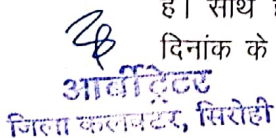 है। साथ
दिनांक के
आर्बीट्रेटर
जिला कलक्टर, सिरोही